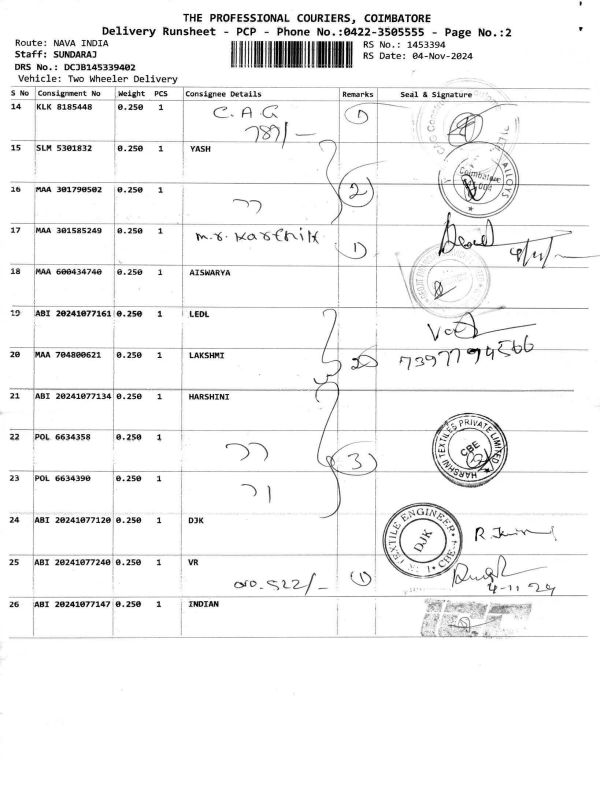 THE PROFESSIONAL COURIERS, COIMBATORE
Delivery Runsheet - PCP - Phone No.:0422-3505555 - Page No.:2
Route: NAVA INDIA
RS No.: 1453394
Staff: SUNDARAJ
RS Date: 04-Nov-2024
DRS No.: DCJB145339402
Vehicle: Two Wheeler Delivery
S No Consignment No Weight PCS Consignee Details Remarks Seal & Signature
14 KLK 8185448 0.250 1 C.A.G 1
787/-
15 SLM 5301832 0.250 1 YASH
ALLOYS
Coimbatore
16 MAA 301790502 0.250 1 2
17 MAA 301585249 0.250 1 M.r. Karthik 1
18 MAA 600434740 0.250 1 AISWARYA
19 ABI 20241077161 0.250 1 LEDL
20 MAA 704800621 0.250 1 LAKSHMI 2 7397794566
21 ABI 20241077134 0.250 1 HARSHINI
22 POL 6634358 0.250 1 3
HARSHINI TEXTILES PRIVATE LIMITED
CBE
23 POL 6634390 0.250 1
24 ABI 20241077120 0.250 1 DJK
TEXTILE ENGINEER
DJK
CBE
25 ABI 20241077240 0.250 1 VR 1
522/-
4-11-24
26 ABI 20241077147 0.250 1 INDIAN